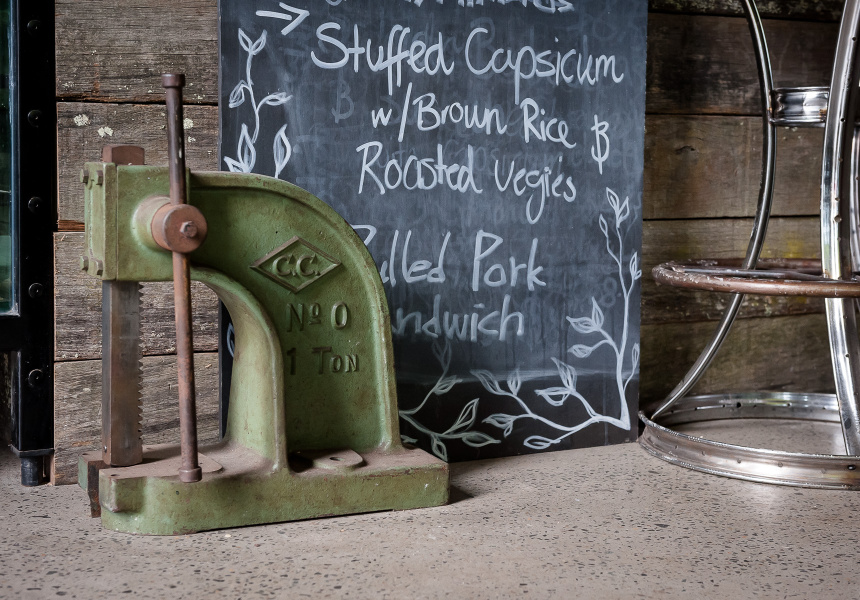 Stuffed Capsicum
w/Brown Rice &
Roasted Vegies
Pulled Pork
Sandwich
C.C.
Nº 0
1 TON